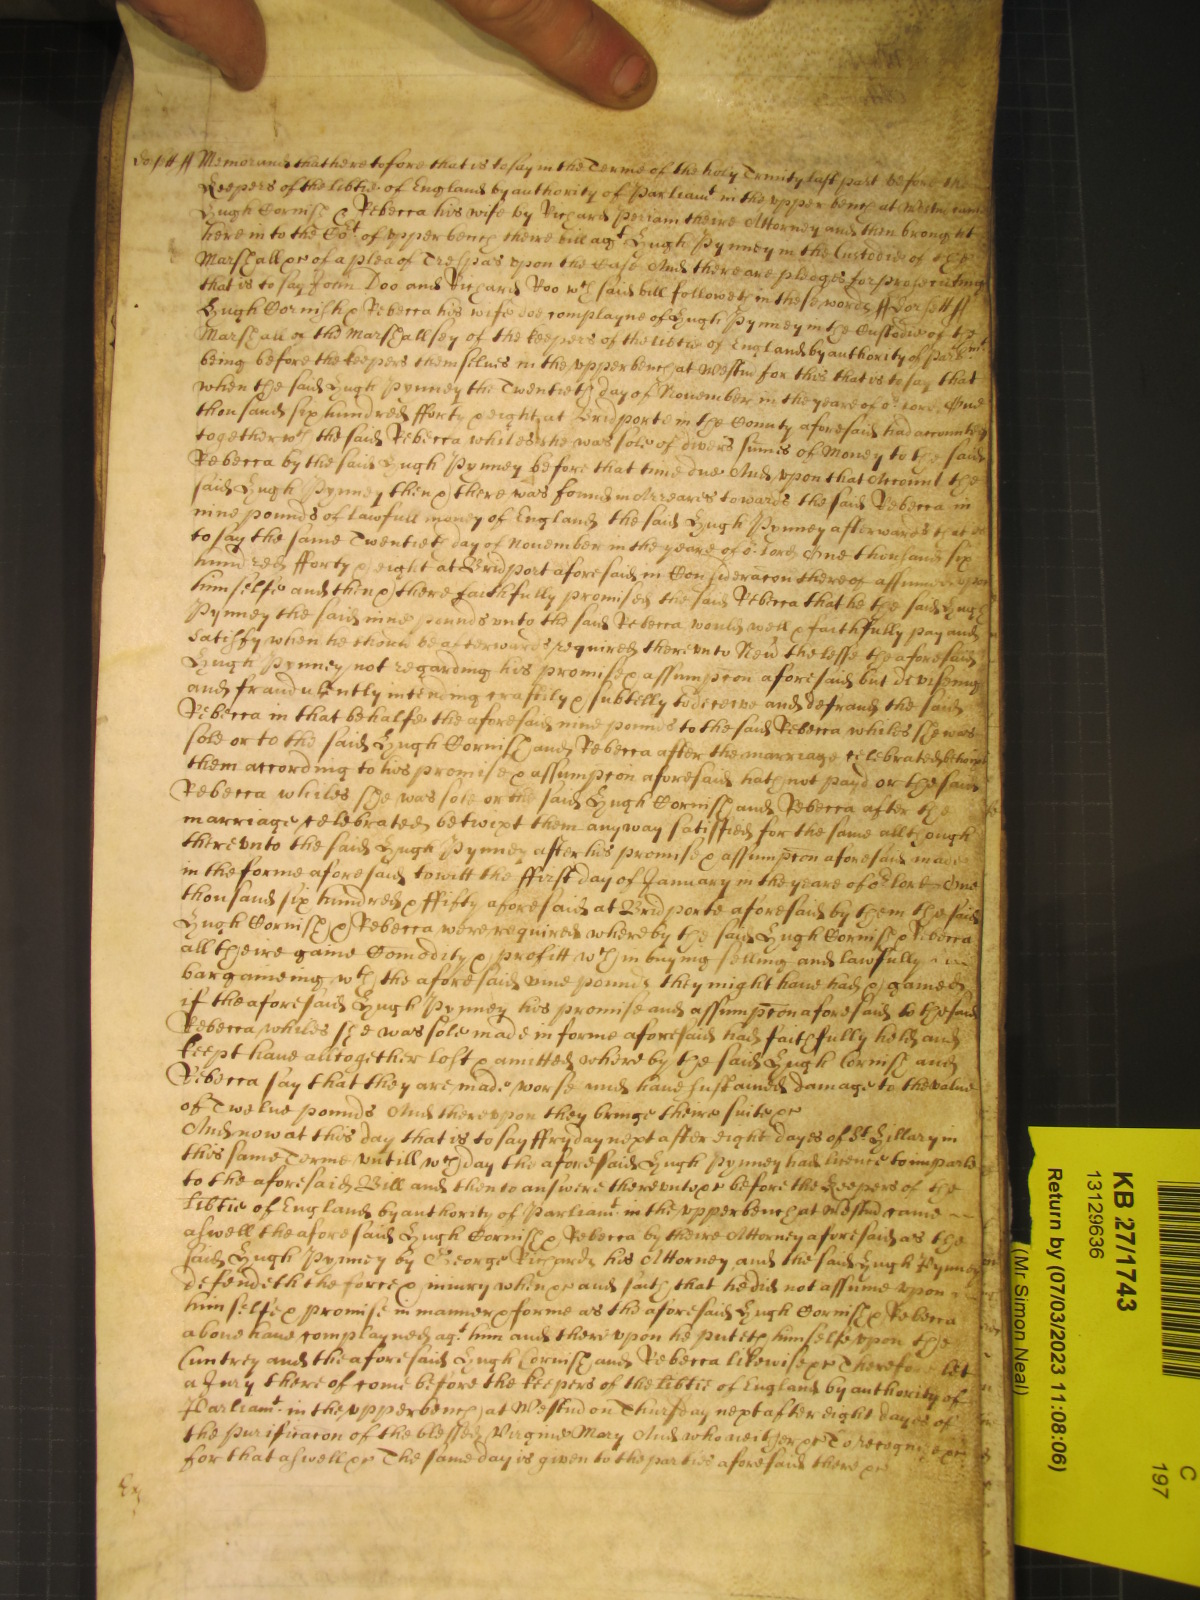 Dorsett ss Memorand that heretofore that is to say in the Terme of the holy Trinity last past before the
Keepers of the libtie of England by authority of Parliamt in the upper bench at Westm came
Hugh Cornish & Rebecca his wife by Richard Periam theire Attorney and then brought
here in to the Cot of upper bench there bill agt Hugh Pynney in the Custodie of the
Marshall &c of a plea of Trespas upon the Case And there are pledges for prosecuting
that is to say John Doo and Richard Roo wch said bill followeth in these words ss Dorsett ss
Hugh Cornish & Rebecca his wife doe complayne of Hugh Pynney in the Custodie of the
Marshall of the Marshallsey of the keepers of the libtie of England by authority of Parliamt
being before the keepers themselves in the upper bench at Westm for this that is to say that
when the said Hugh Pynney the Twentieth day of November in the yeare of or lord One
thousand six hundred fforty & eight at Bridporte in the County aforesaid had accounted
together wth the said Rebecca whiles she was sole of divers sumes of Money to the said
Rebecca by the said Hugh Pynney before that time due And upon that Account the
said Hugh Pynney then & there was found in Arreares towards the said Rebecca in
nine pounds of lawfull money of England the said Hugh Pynney afterwards that is
to say the same Twentieth day of November in the yeare of or lord One thousand six
hundred fforty & eight at Bridport aforesaid in Consideracon thereof assumed upon
himselfe and then & there faithfully promised the said Rebecca that he the said Hugh
Pynney the said nine pounds unto the said Rebecca would well & faithfully pay and
satisfy when he should be afterwards required thereunto Nevd the lesse the aforesaid
Hugh Pynney not regarding his promise & assumpcon aforesaid but devising
and fraudulently intending craftily & subtelly to deceive and defraud the said
Rebecca in that behalfe the aforesaid nine pounds to the said Rebecca whiles she was
sole or to the said Hugh Cornish and Rebecca after the marriage celebrated betwixt
them according to his promise & assumpcon aforesaid hath not payd or the said
Rebecca whiles she was sole or the said Hugh Cornish and Rebecca after the
marriage celebrated betwixt them any way satisfied for the same allthough
thereunto the said Hugh Pynney after his promise & assumpcon aforesaid made
in the forme aforesaid to witt the ffirst day of January in the yeare of or lord One
thousand six hundred & ffifty aforesaid at Bridporte aforesaid by them the said
Hugh Cornish & Rebecca were required whereby the said Hugh Cornish & Rebecca
all theire gaine Comodity & profitt wch in buying selling and lawfully
bargaineing wth the aforesaid nine pounds they might have had & gained
if the aforesaid Hugh Pynney his promise and assumpcon aforesaid to the said
Rebecca whiles she was sole made in forme aforesaid had faithfully held and
keept have alltogether lost & amitted whereby the said Hugh Cornish and
Rebecca say that they are made worse and have sustained damage to the value
of Twelve pounds And thereupon they bringe theire suite &c
And now at this day that is to say ffryday next after eight dayes of St Hillary in
this same Terme untill wch day the aforesaid Hugh Pynney had licence to imparle
to the aforesaid Bill and then to answere thereunto &c before the Keepers of the
libtie of England by authority of Parliamt in the upper bench at Westm came
aswell the aforesaid Hugh Cornish & Rebecca by theire Attorney aforesaid as the
said Hugh Pynney by George Richards his Attorney and the said Hugh Pynney
defendeth the force & iniury when &c and saith that he did not assume upon
himselfe & promise in manner & forme as the aforesaid Hugh Cornish & Rebecca
above have complayned agt him and thereupon he putteth himselfe upon the
Cuntrey and the aforesaid Hugh Cornish and Rebecca likewise &c Therefore let
a Jury thereof come before the keepers of the libtie of England by authority of
Parliamt in the upper bench at Westm on Thursday next after eight dayes of
the purificacon of the blessed Virgine Mary And who neither &c To recognize &c
for that aswell &c The same day is given to the parties aforesaid there &c
KB 27/1743
13129636
Return by (07/03/2023 11:08:06)
(Mr Simon Neal)
C
197